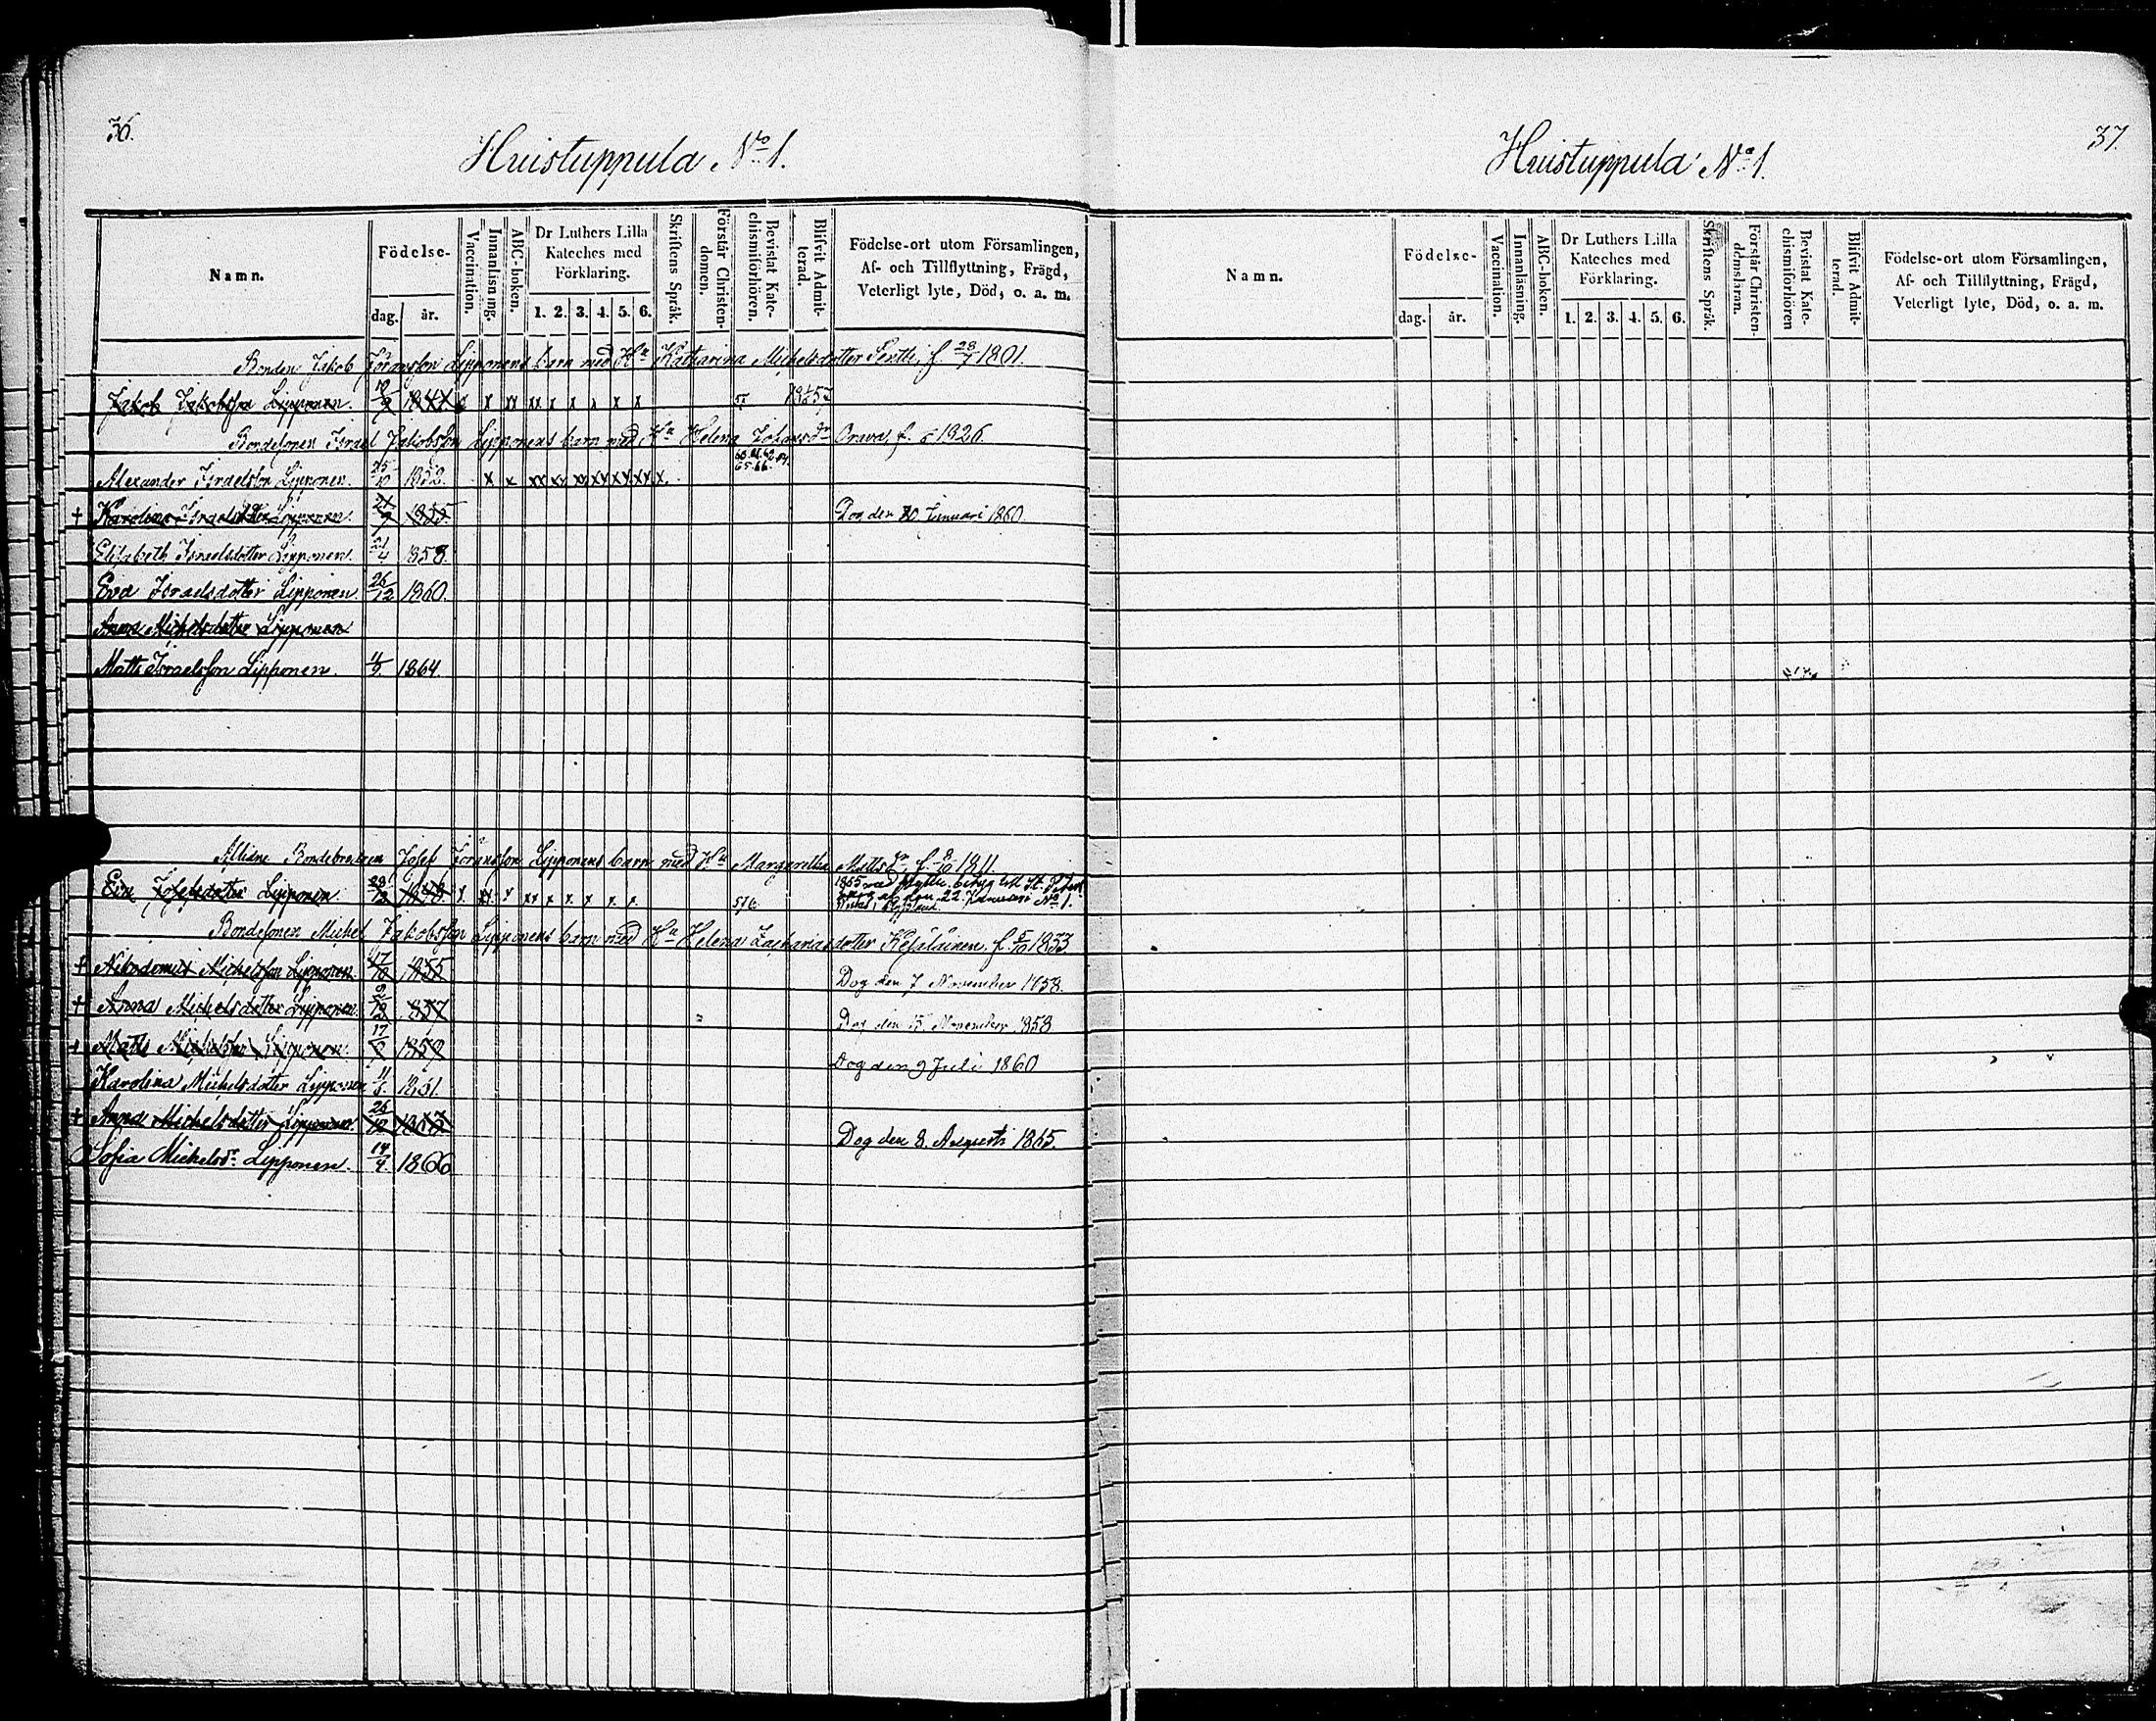 36.
Huistuppula No 1.
Namn.
Födelse-
dag. år.
Vaccination.
Innanläsning.
ABC-boken.
Dr Luthers Lilla
Kateches med
Förklaring.
1. 2. 3. 4. 5. 6.
Skriftens Språk.
Förstår Christen-
domen.
Bevistat Kate-
chismiförhören.
Blifvit Admit-
terad.
Födelse-ort utom Församlingen,
Af- och Tillflyttning, Frägd,
Veterligt lyte, Död, o. a. m.
Bonden Jakob Göransson Lipponens barn med Hu Katharina Michelsdotter Sentti, f. 28/7 1801.
Jakob Jakobsson Lipponen. x xx xx x x x x x
Bondesonen Israel Jakobsson Lipponens barn med Hu Helena Johansdr Orava, f. 1826.
Alexander Israelsson Lipponen. 25/10 1852. x x xx xx xx xx xx xx x.
+ Karolina Israelsdotter Lipponen 1855. Dog den 20 Januari 1860.
Elisabeth Israelsdotter Lipponen. 21/4 1858.
Eva Israelsdotter Lipponen. 26/12 1860.
Anna Michelsdotter Lipponen
Matts Israelsson Lipponen. 11/9 1864.
Bondebrodren Josef Göransson Lipponens barn med Hu Margaretha Mattsdr f. 8/10 1811.
Eva Josefsdotter Lipponen. x xx x xx x x x x x 1855 med flytt. betyg till St.
22 Januari No 1.
Bondesonen Michel Jakobsson Lipponens barn med Hu Helena Zachariasdotter Kejäläinen. f. 5/10 1833
+ Nikodemus Michelsson Lipponen 17/10 1855 Dog den 7 November 1858.
+ Anna Michelsdotter Lipponen 1857 Dog den 15 November 1858
+ Matts Michelsson Lipponen. 1859 Dog den 9 Juli 1860
Karolina Michelsdotter Lipponen 11/6 1861.
+ Anna Michelsdotter Lipponen. 26/10 1863 Dog den 8. Augusti 1865.
Sofia Michelsdr Lipponen. 14/4 1866
37.
Huistuppula No 1.
Namn.
Födelse-
dag. år.
Vaccination.
Innanläsning.
ABC-boken.
Dr Luthers Lilla
Kateches med
Förklaring.
1. 2. 3. 4. 5. 6.
Skriftens Språk.
Förstår Christen-
domsläran.
Bevistat Kate-
chismiförhören
Blifvit Admit-
terad.
Födelse-ort utom Församlingen,
Af- och Tillflyttning, Frägd,
Veterligt lyte, Död, o. a. m.